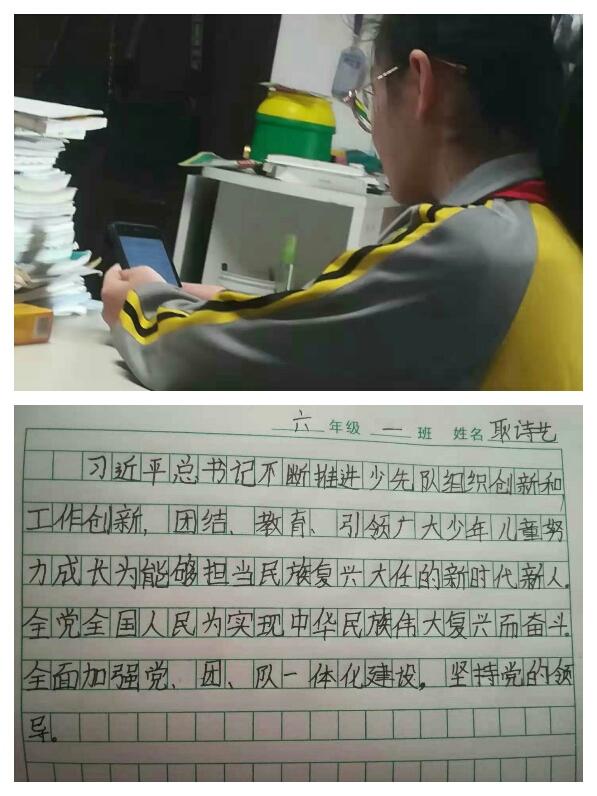 六 年级 一 班 姓名 耿诗艺
习近平总书记不断推进少先队组织创新和
工作创新,团结、教育、引领广大少年儿童努
力成长为能够担当民族复兴大任的新时代新人.
全党全国人民为实现中华民族伟大复兴而奋斗.
全面加强党、团、队一体化建设,坚持党的领
导。